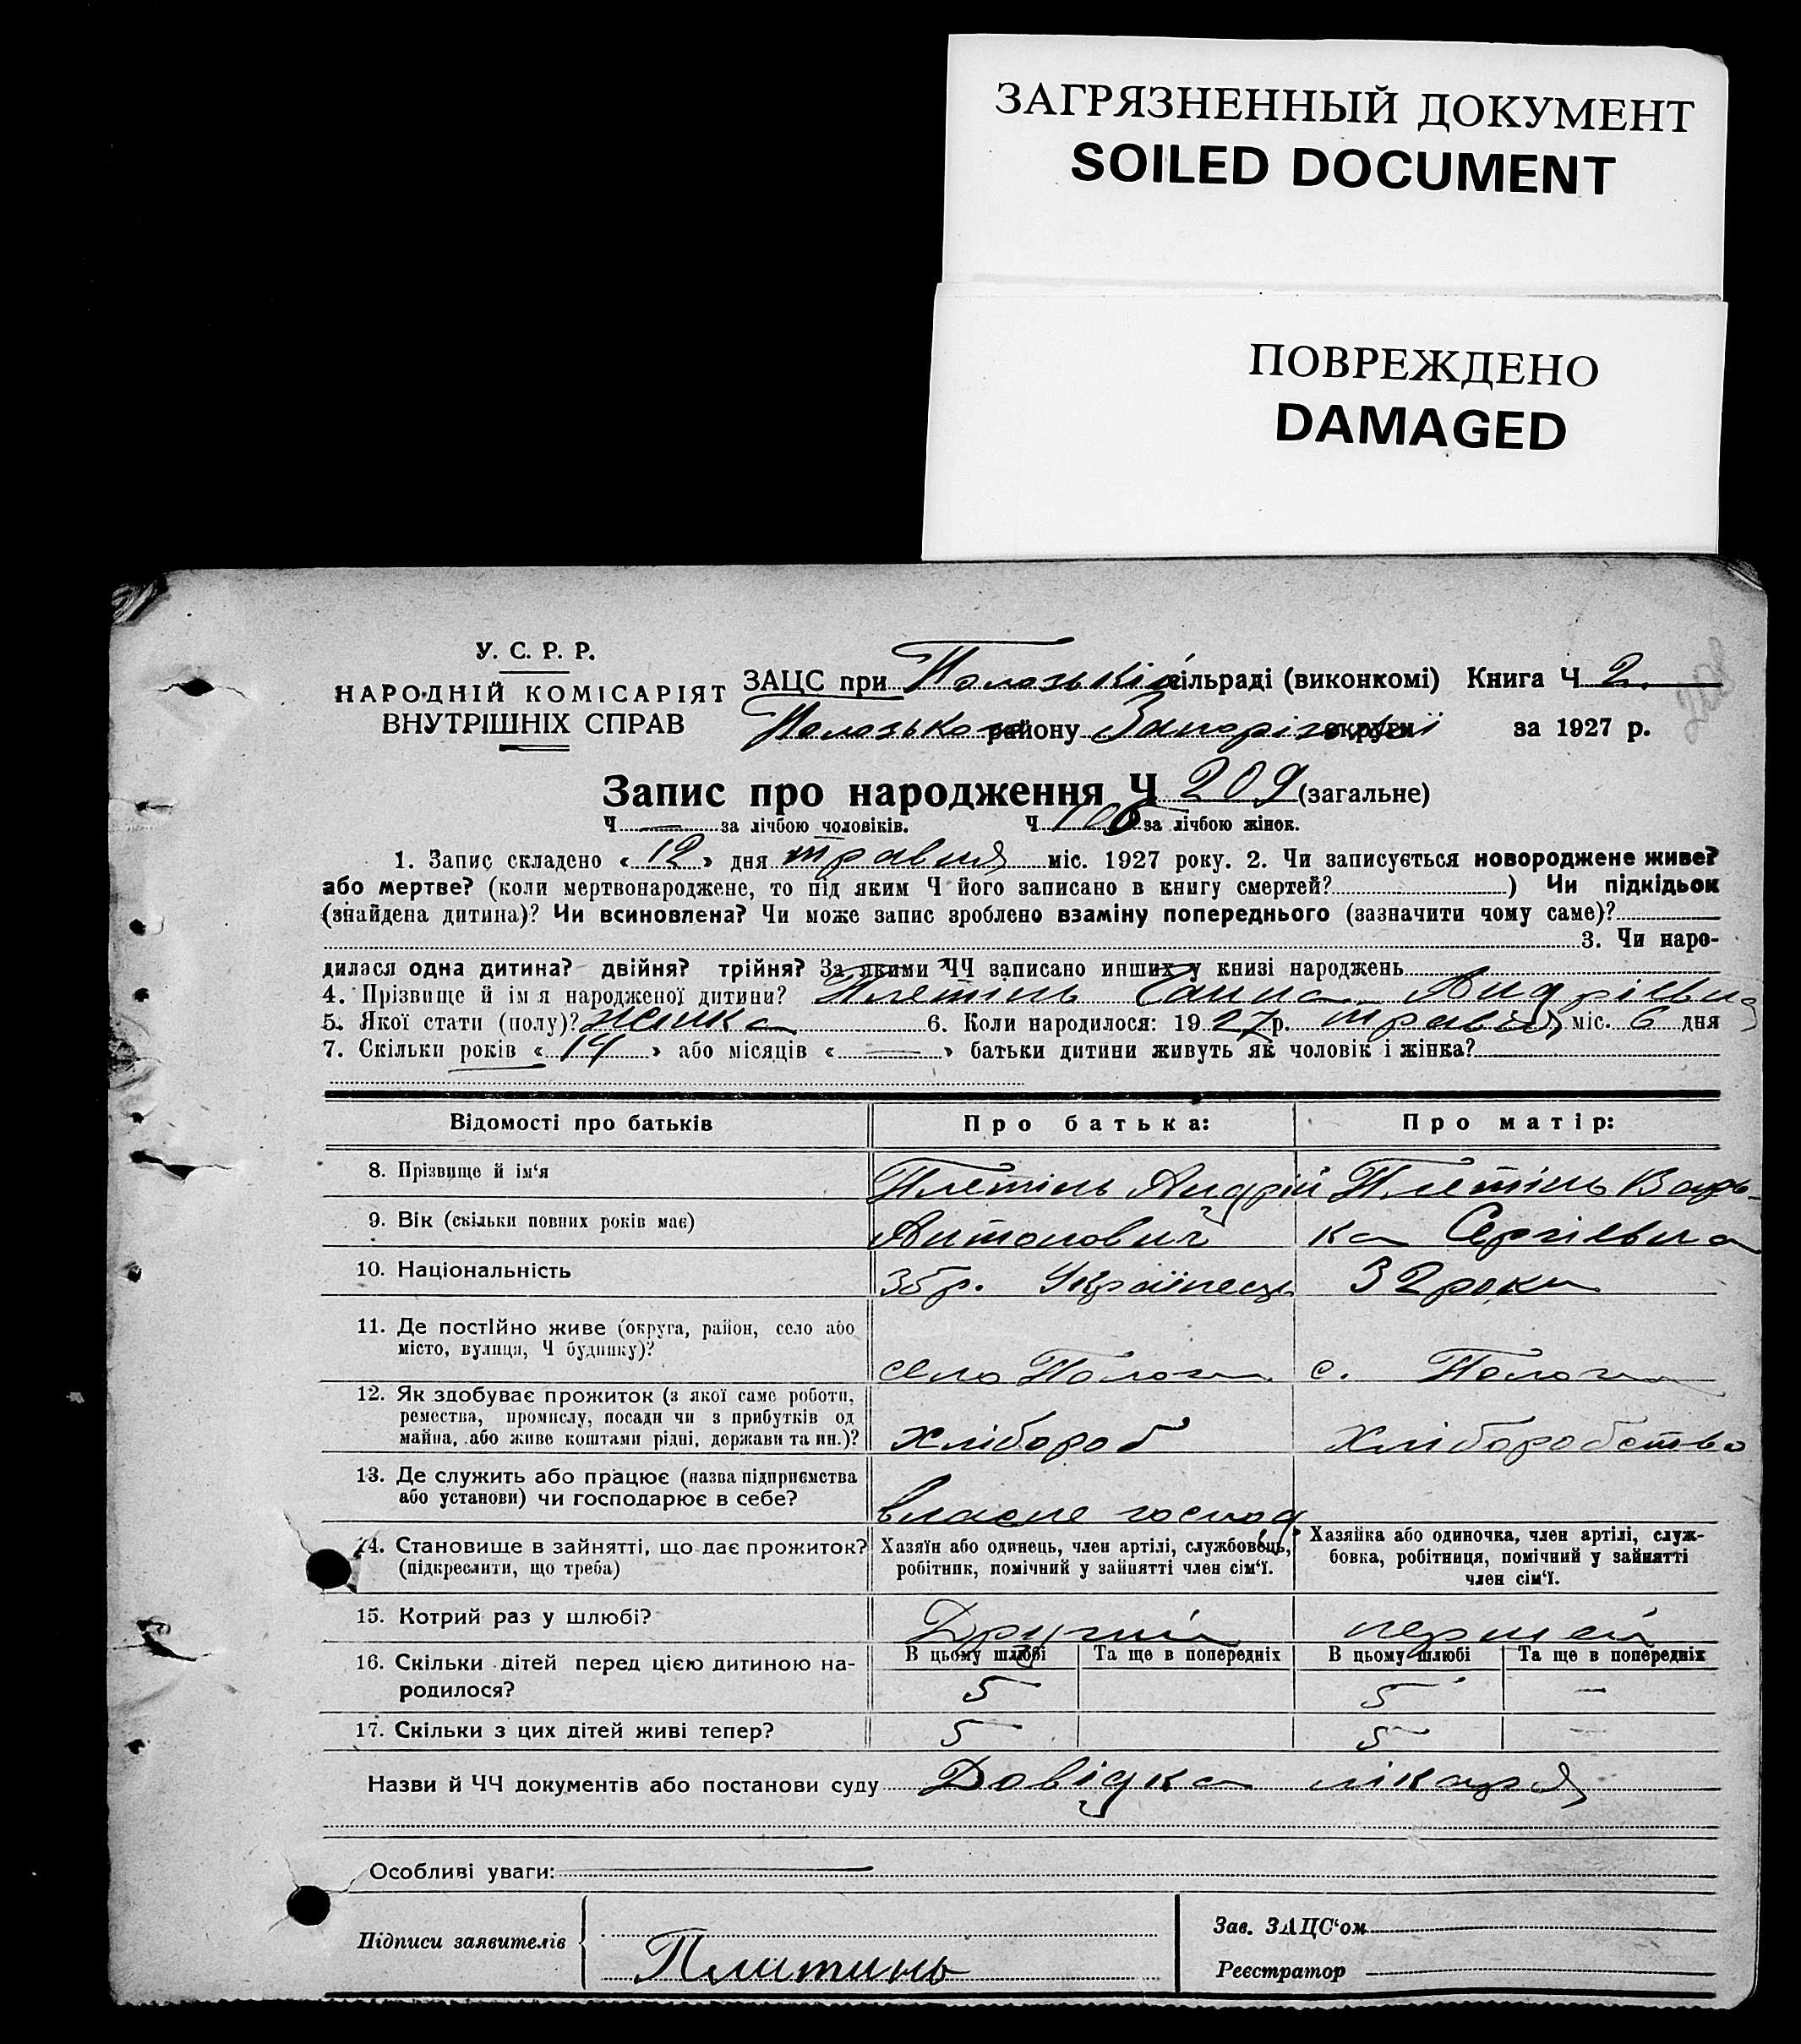 ЗАГРЯЗНЕННЫЙ ДОКУМЕНТ
SOILED DOCUMENT
ПОВРЕЖДЕНО
DAMAGED
У. С. Р. Р.
НАРОДНІЙ КОМІСАРІЯТ
ВНУТРІШНІХ СПРАВ
ЗАЦС при Пологській сільраді (виконкомі) Книга Ч 2.
Пологського району Запорізької округи за 1927 р.
Запис про народження Ч 209 (загальне)
Ч — за лічбою чоловіків. Ч за лічбою жінок.
1. Запис складено « 12 » дня травня міс. 1927 року. 2. Чи записується новороджене живе?
або мертве? (коли мертвонароджене, то під яким Ч його записано в книгу смертей? ) Чи підкідьок
(знайдена дитина)? Чи всиновлена? Чи може запис зроблено взаміну попереднього (зазначити чому саме)?
3. Чи наро-
дилася одна дитина? двійня? трійня? За якими ЧЧ записано инших у книзі народжень
4. Прізвище й ім'я народженої дитини? Плетінь Ганна Андріївна
5. Якої стати (полу)? жінка 6. Коли народилося: 1927 р. травня міс. 6 дня
7. Скільки років « 14 » або місяців « — » батьки дитини живуть як чоловік і жінка?
Відомості про батьків Про батька: Про матір:
8. Прізвище й ім'я Плетінь Андрій Плетінь Варь-
9. Вік (скільки повних років має) Антонович ка Сергіївна
10. Національність 35р. Українець 32 роки
11. Де постійно живе (округа, район, село або
місто, вулиця, Ч будинку)? село Пологи с. Пологи
12. Як здобуває прожиток (з якої саме роботи,
ремества, промислу, посади чи з прибутків од
майна, або живе коштами рідні, держави та ин.)? Хлібороб Хліборобство
13. Де служить або працює (назва підприємства
або установи) чи господарює в себе? власне господ
14. Становище в зайнятті, що дає прожиток? Хазяїн або одинець, член артілі, службовець, Хазяйка або одиночка, член артілі, служ-
(підкреслити, що треба) робітник, помічний у зайнятті член сім'ї. бовка, робітниця, помічний у зайнятті
член сім'ї.
15. Котрий раз у шлюбі? Другий перший
В цьому шлюбі Та ще в попередніх В цьому шлюбі Та ще в попередніх
16. Скільки дітей перед цією дитиною на-
родилося? 5 5 —
17. Скільки з цих дітей живі тепер? 5 5 —
Назви й ЧЧ документів або постанови суду Довідка лікаря
Особливі уваги:
Підписи заявителів
Плитинь
Зав. ЗАЦС'ом
Реєстратор